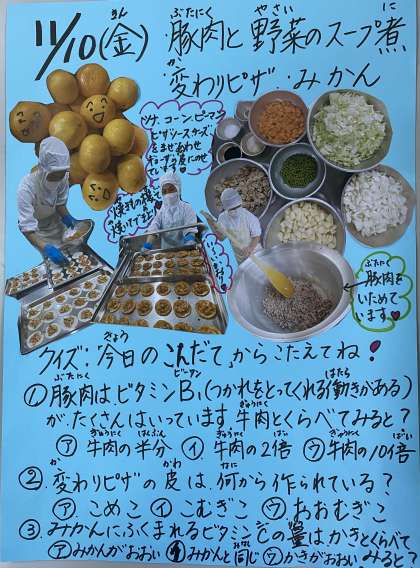 11/10(金)・豚肉と野菜のスープ煮
・変わりピザ・みかん
ツナ、コーン、ピーマン
ピザソース、チーズ
をまぜあわせ
豚肉を
いためて
います♥
クイズ:今日のこんだてからこたえてね!
①豚肉は、ビタミンB₁(つかれをとってくれる働きがある)
が、たくさんはいっています。牛肉とくらべてみると?
ア牛肉の半分 イ牛肉の2倍 ウ牛肉の10倍
②変わりピザの皮は、何から作られている?
アこめこ イこむぎこ ウおおむぎこ
③みかんにふくまれるビタミンCの量はかきとくらべて
みると?
アみかんがおおい イみかんと同じ ウかきがおおい